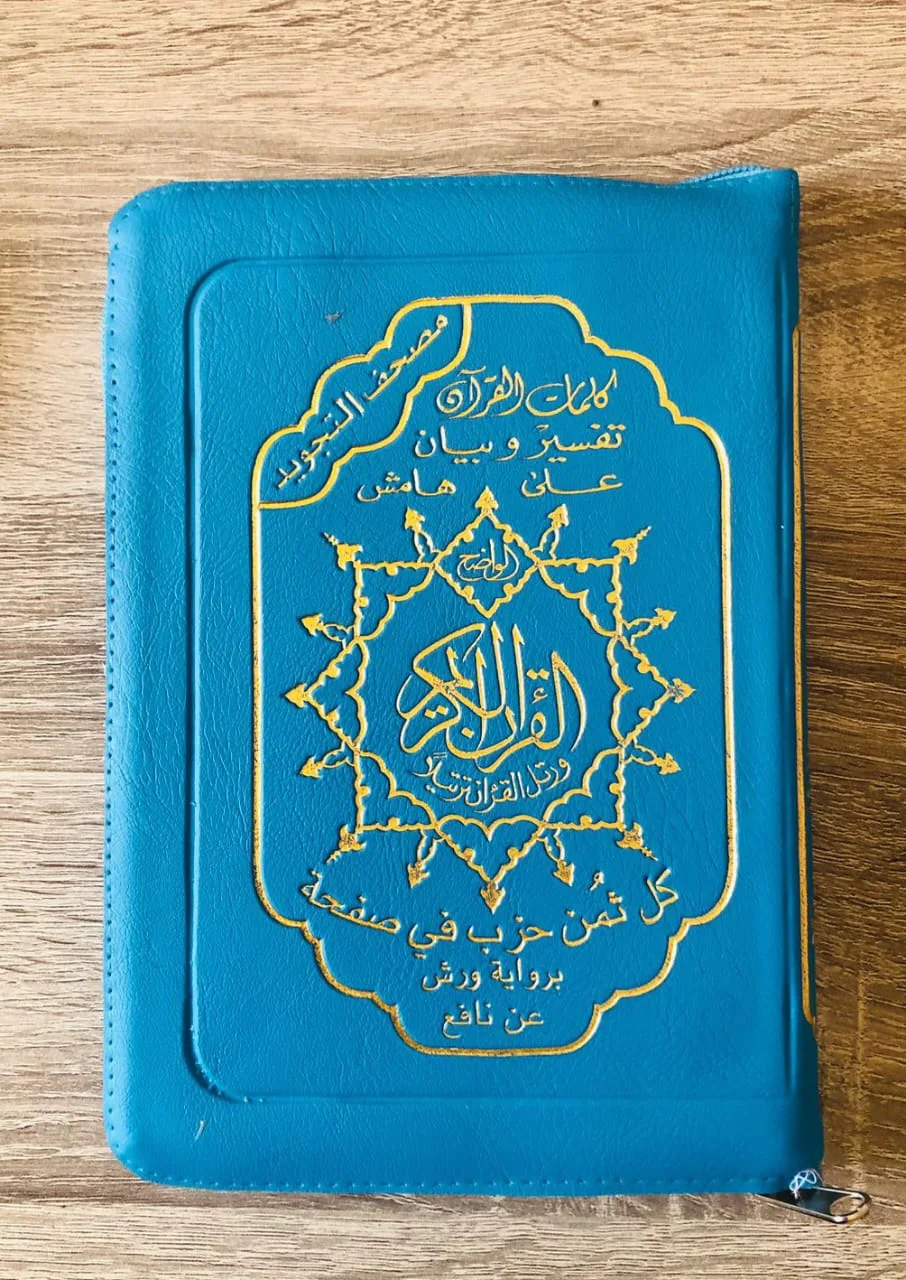 مصحف التجويد
كلمات القرآن
تفسير و بيان
على هامش
الواضح
القرآن الكريم
ورتل القرءان ترتيلاً
كل ثُمن حزب في صفحة
برواية ورش
عن نافع